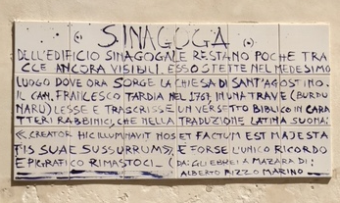 SINAGOGA
DELL'EDIFICIO SINAGOGALE RESTANO POCHE TRA
CCE ANCORA VISIBILI. ESSO STETTE NEL MEDESIMO
LUOGO DOVE ORA SORGE LA CHIESA DI SANT'AGOSTINO.
IL CAN. FRANCESCO TARDIA NEL 1767, IN UNA TRAVE (BURDU
NARU) LESSE E TRASCRISSE UN VERSETTO BIBLICO IN CARA
TTERI RABBINICI, CHE NELLA TRADUZIONE LATINA SUONA:
«CREATOR HIC ILLUMINAVIT NOS ET FACTUM EST MAJESTA
TIS SUAE SUSSURRUM» E FORSE L'UNICO RICORDO
EPIGRAFICO RIMASTOCI_ (DA: GLI EBREI A MAZARA DI:
ALBERTO RIZZO MARINO